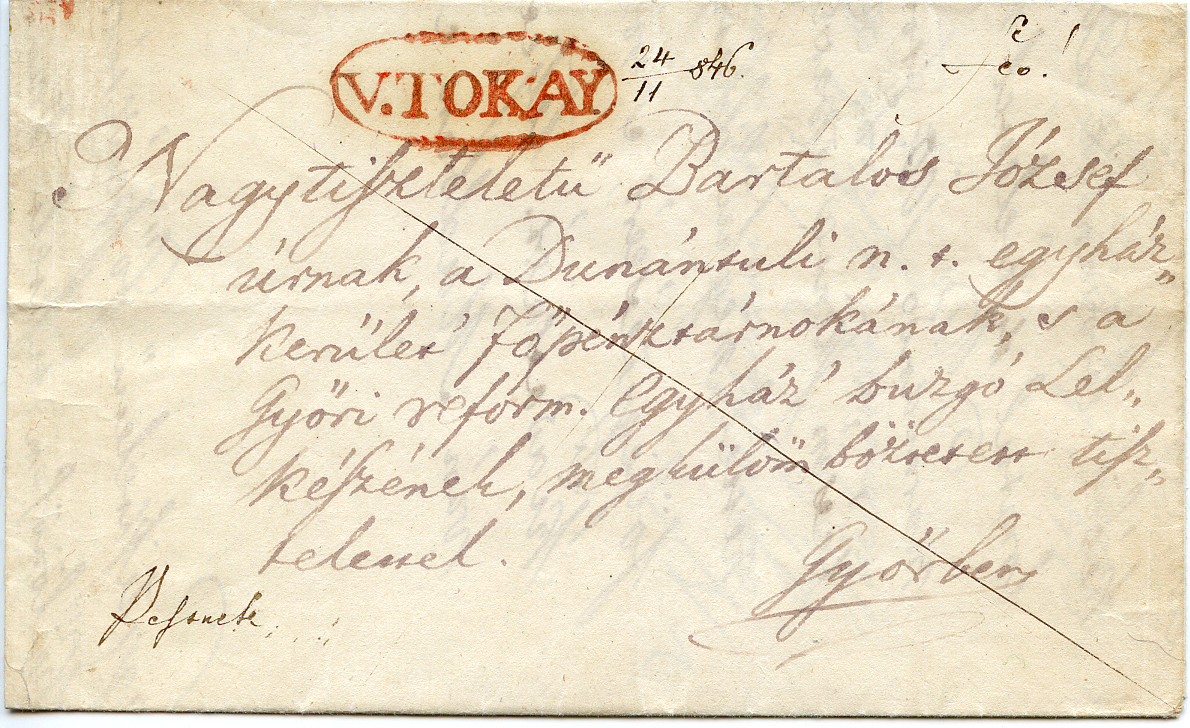 V. TOKAY.
24/11 846.
Nagytiszteletü Bartalos József
úrnak, a Dunántuli n. t. egyház„
kerület Főpénztárnokának, s a
Győri reform. Egyház' buzgó Lel„
készének, megkülömböztetett tisz„
telettel.
Győrben